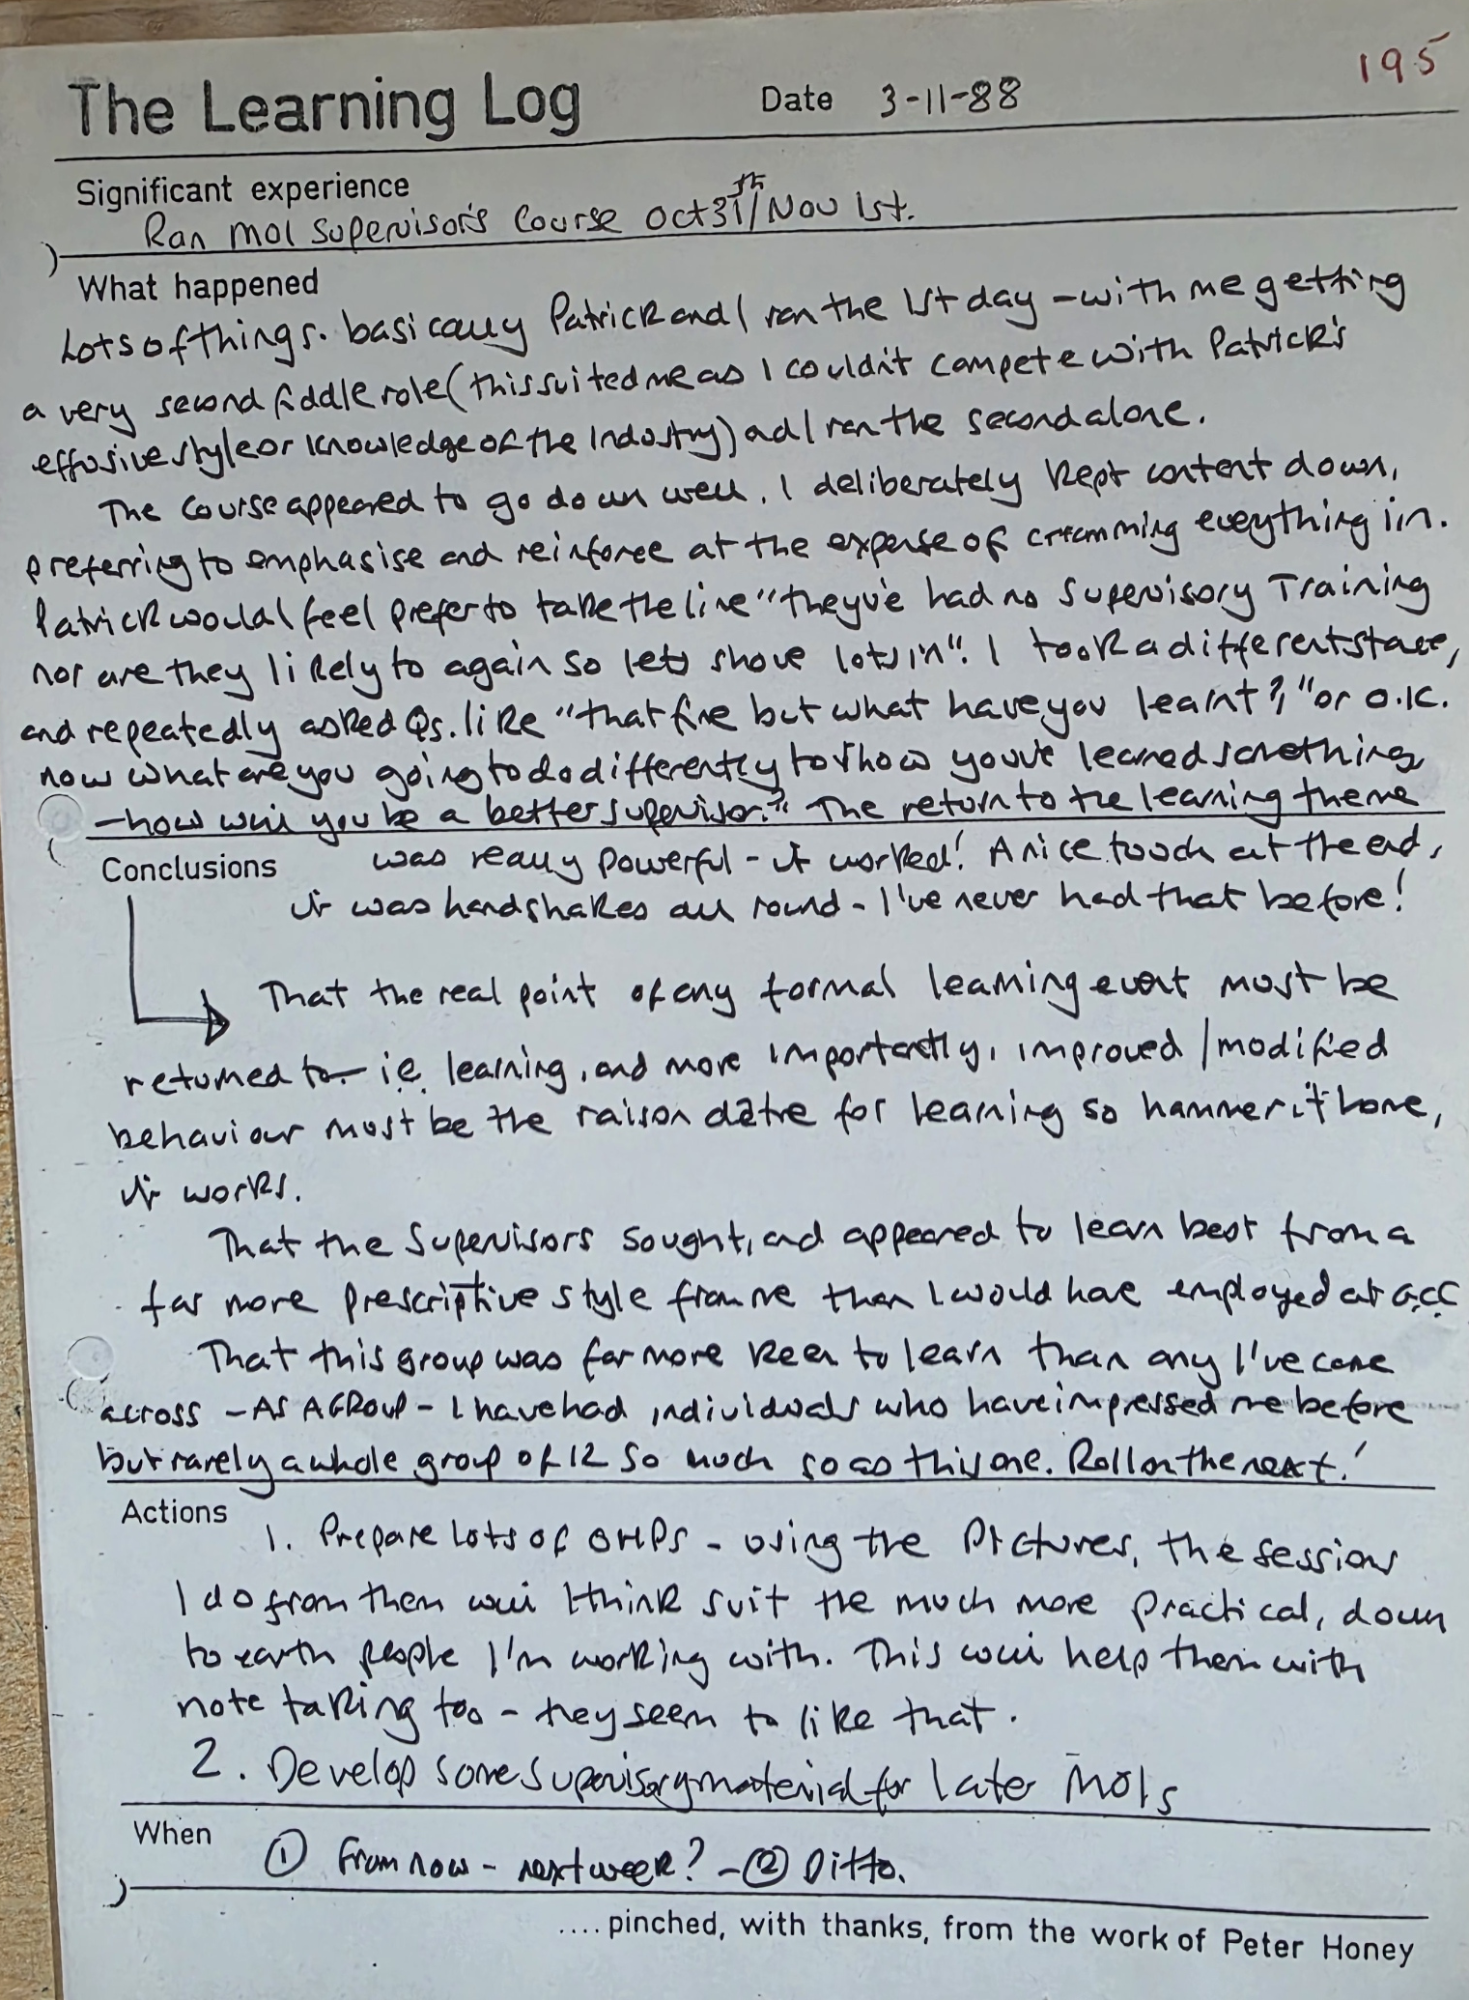 195
The Learning Log Date 3-11-88
Significant experience
Ran MOL Supervisor's Course Oct 31th/Nov 1st.
What happened
Lots of things. basically Patrick and I ran the 1st day - with me getting
a very second fiddle role (this suited me as I couldn't compete with Patrick's
effusive style or knowledge of the Industry) ad I ran the second alone.
The course appeared to go down well. I deliberately kept content down,
preferring to emphasise and reinforce at the expense of cramming everything iin.
Patrick would I feel prefer to take the line "they've had no Supervisory Training
nor are they likely to again so lets shove lots in". I took a different stace,
and repeatedly asked Qs. like "that fine but what have you learnt?," or O.K.
now what are you going to do differently to show you've learned something
- how will you be a better supervisor?" The return to the learning theme
Conclusions was really powerful - it worked! A nice touch at the end,
it was handshakes all round - I've never had that before!
That the real point of any formal learning event must be
returned to - i.e. learning, and more importantly, improved / modified
behaviour must be the raison d'etre for learning so hammer it home,
it works.
That the Supervisors sought, and appeared to learn best from a
far more prescriptive style from me than I would have employed at G.C.C
That this group was far more keen to learn than any I've come
across - AS A GROUP - I have had individuals who have impressed me before
but rarely a whole group of 12 so much so as this one. Roll on the next!
Actions 1. Prepare lots of OHPs - using the Pictures, the sessions
I do from them will I think suit the much more practical, down
to earth people I'm working with. This will help them with
note taking too - they seem to like that.
2. Develop some supervisory material for later MOLs
When ① From now - next week? - ② Ditto.
....pinched, with thanks, from the work of Peter Honey